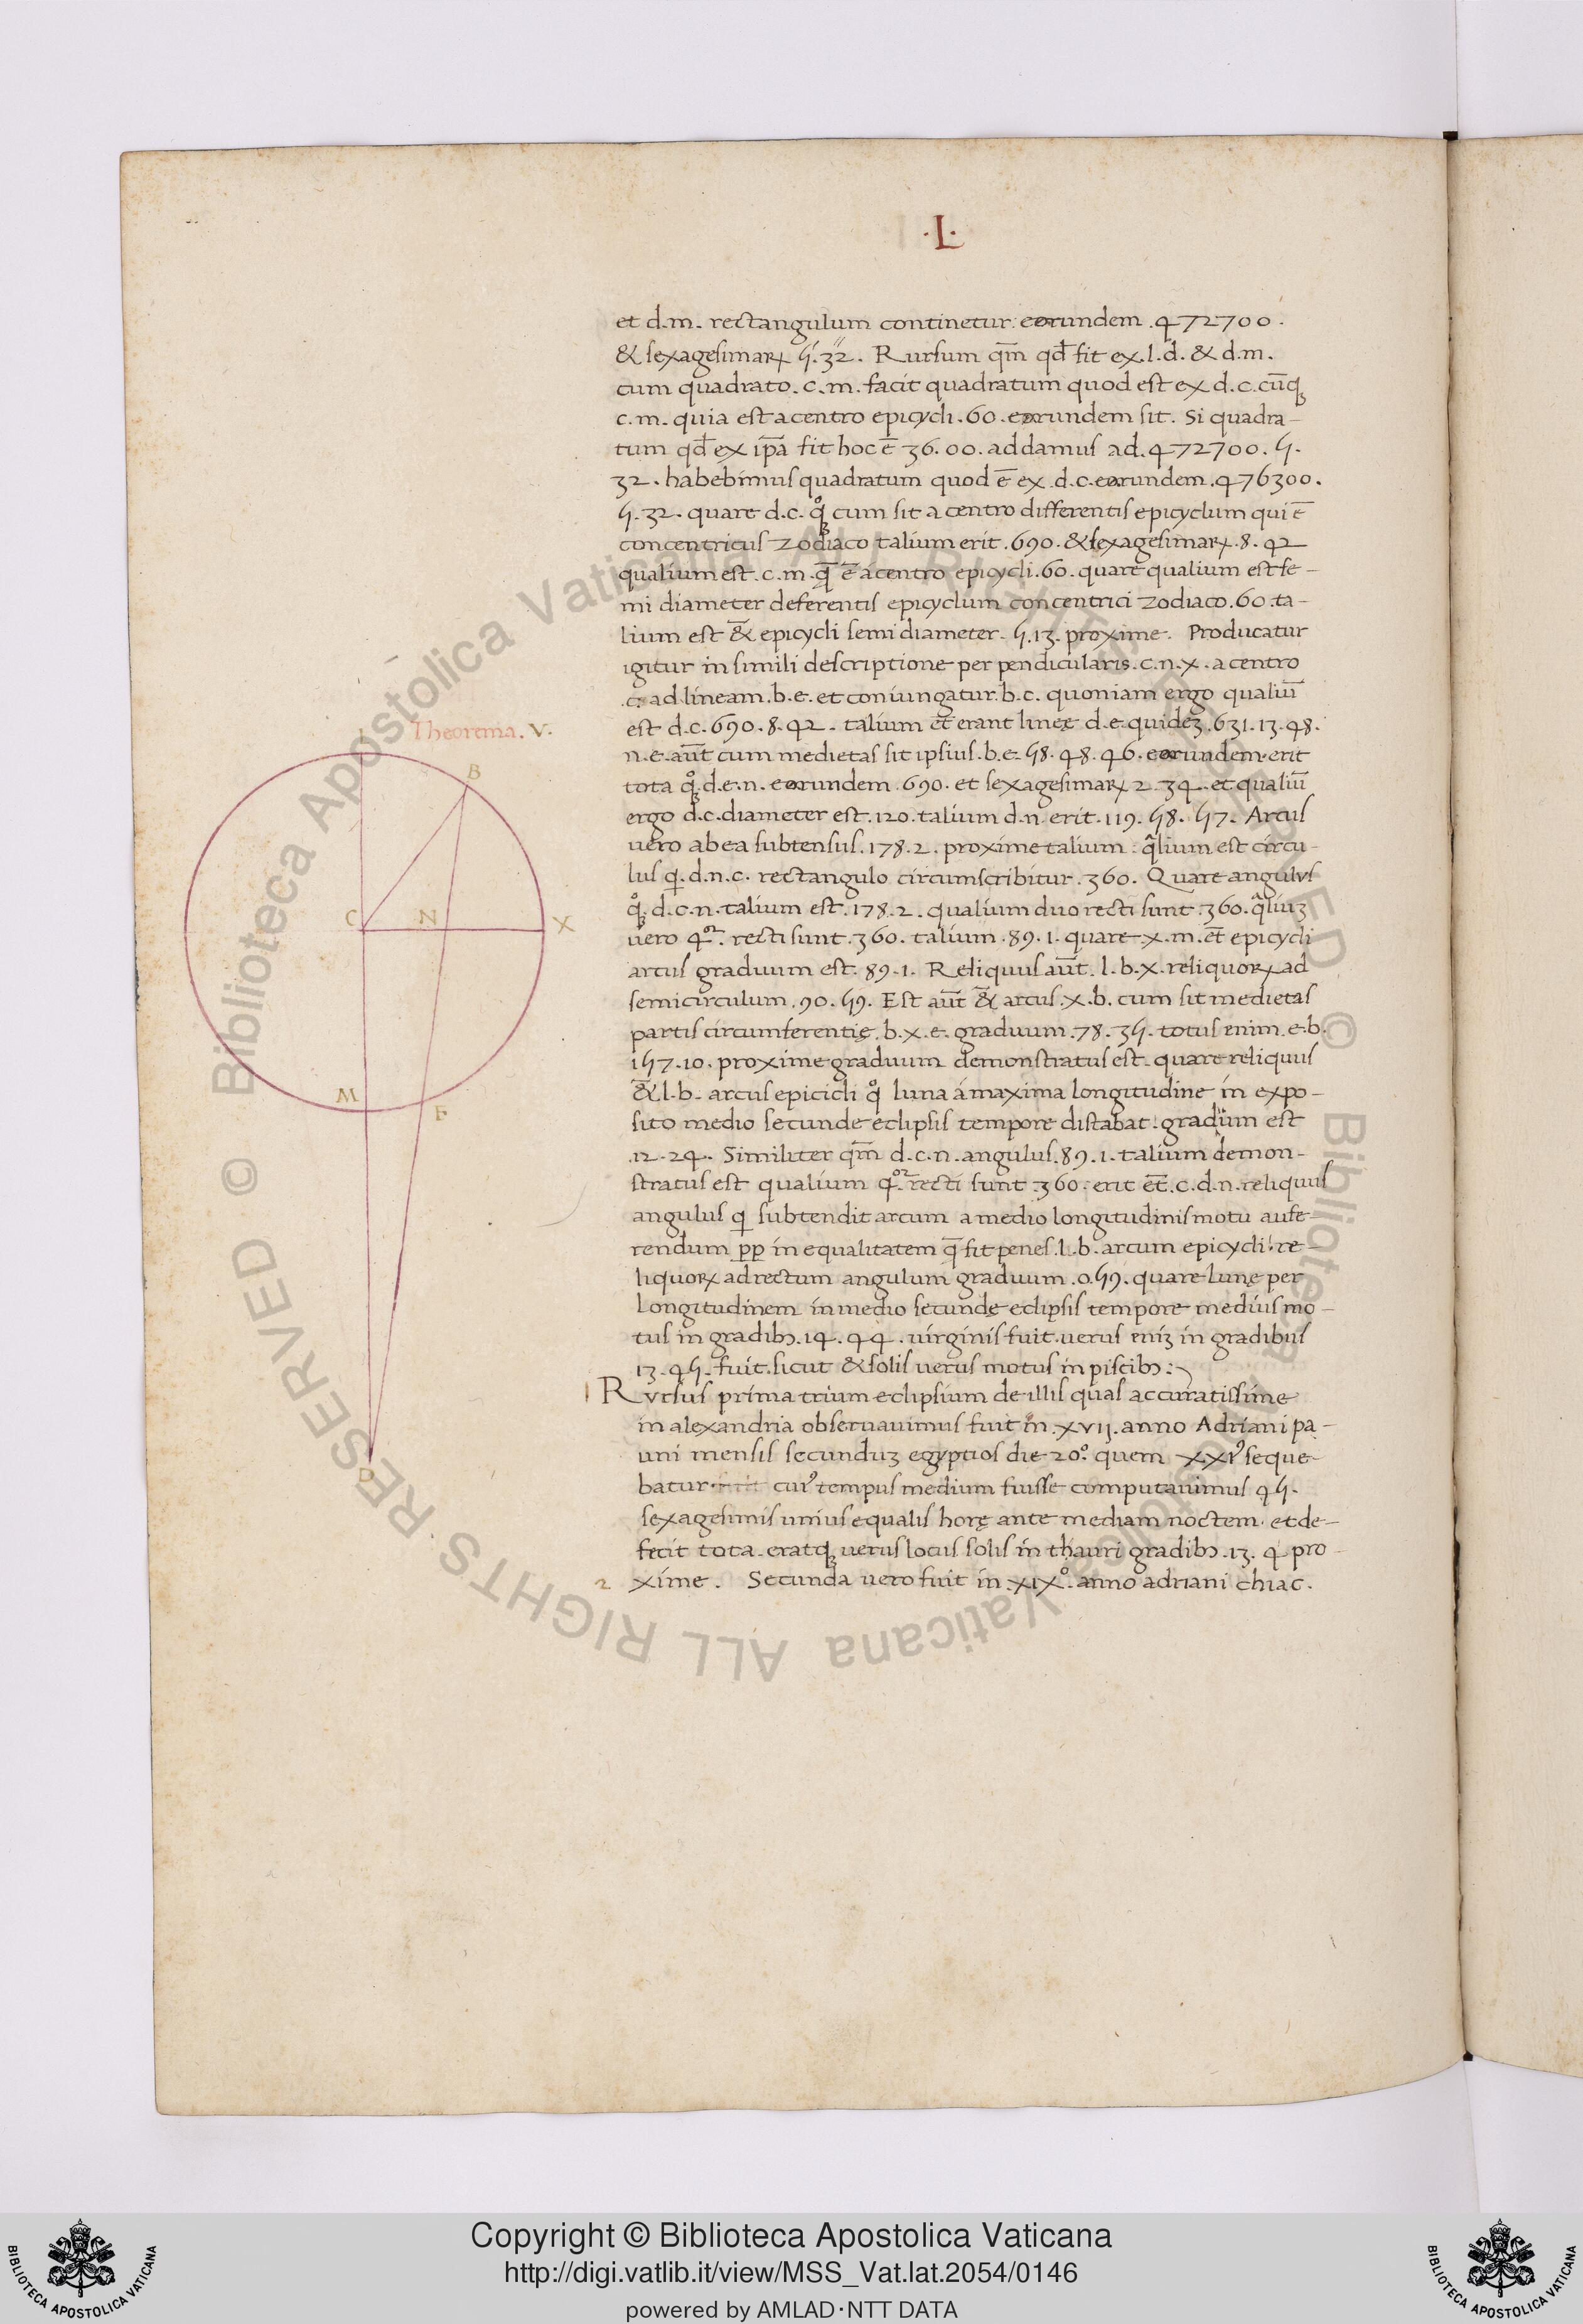 ·L·
et d.m. rectangulum continetur: eorundem .472700.
& sexagesimaꝝ 5. 32. Rursum qm̄ qđ fit ex .l.d. & d.m.
cum quadrato .c.m. facit quadratum quod est ex d.c. cūqꝫ
c.m. quia est a centro epicycli .60. eorundem sit. Si quadra-
tum qđ ex ip̄a fit hoc ē 36.00. addamus ad .472700. 5.
32. habebimus quadratum quod ē ex .d.c. eorundem .476300.
5.32. quare d.c. qꝫ cum sit a centro differentis epicyclum qui ē
concentricus zodiaco talium erit .690. & sexagesimaꝝ .8. 42
qualium est .c.m. q̄ ē a centro epicycli .60. quare qualium est se-
mi diameter deferentis epicyclum concentrici zodiaco .60. ta-
lium est & epicycli semi diameter. 5.13. proxime. Producatur
igitur in simili descriptione per pendicularis .c.n.x. a centro
.c. ad lineam .b.e. et coniungatur .b.c. quoniam ergo qualiū
est d.c. 690. 8. 42. talium et erant lineę d.e. quideꝫ .631. 13. 48.
n.e. aūt cum medietas sit ipsius .b.e. 58. 48. 46. eorundem erit
tota qꝫ d.e.n. eorundem .690. et sexagesimaꝝ 2. 34. et qualiū
ergo d.c. diameter est .120. talium d.n. erit .119. 58. 57. Arcus
uero ab ea subtensus .178. 2. proxime talium : qlium est circu-
lus q. d.n.c. rectangulo circumscribitur .360. Quare angulus
qꝫ d.c.n. talium est .178. 2. qualium duo recti sunt .360. qliuꝫ
uero 4or. recti sunt .360. talium .89. 1. quare x.m. et epicycli
arcus graduum est. 89. 1. Reliquus aūt .l.b.x. reliquoꝝ ad
semicirculum .90. 59. Est aūt & arcus .x.b. cum sit medietas
partis circumferentię .b.x.e. graduum .78. 35. totus enim .e.b.
157. 10. proxime graduum demonstratus est. quare reliquus
& l.b. arcus epicicli q luna á maxima longitudine in expo-
sito medio secunde eclipsis tempore distabat. graduum est
.12. 24. Similiter qm̄ d.c.n. angulus .89. 1. talium demon-
stratus est qualium 4or. recti sunt .360. erit et .c.d.n. reliquus
angulus q subtendit arcum a medio longitudinis motu aufe-
rendum pp inequalitatem q̄ fit penes .l.b. arcum epicycli. re-
liquoꝝ ad rectum angulum graduum .0. 59. quare lunę per
longitudinem in medio secundę eclipsis tempore medius mo-
tus in gradibꝫ .14. 44. uirginis fuit. uerus eniꝫ in gradibus
13. 45. fuit. sicut & solis uerus motus in piscibꝫ :
1 Rursus prima trium eclipsium de illis quas accuratissime
in alexandria obseruauimus fuit in .XVII. anno Adriani pa-
uni mensis secunduꝫ egyptios die 20o. quem XXI seque-
batur cuiꝰ tempus medium fuisse computauimus 45.
sexagesimis unius equalis horę ante mediam noctem. et de-
fecit tota. eratqꝫ uerus locus solis in thauri gradibꝫ .13. 4 pro
2 xime. Secunda uero fuit in .XIXo. anno adriani chiac.
Theorema .V.
L
B
C
N
X
M
E
D
Copyright © Biblioteca Apostolica Vaticana
http://digi.vatlib.it/view/MSS_Vat.lat.2054/0146
powered by AMLAD·NTT DATA
BIBLIOTECA APOSTOLICA VATICANA
BIBLIOTECA APOSTOLICA VATICANA
© Biblioteca Apostolica Vaticana ALL RIGHTS RESERVED © Biblioteca Apostolica Vaticana ALL RIGHTS RESERVED